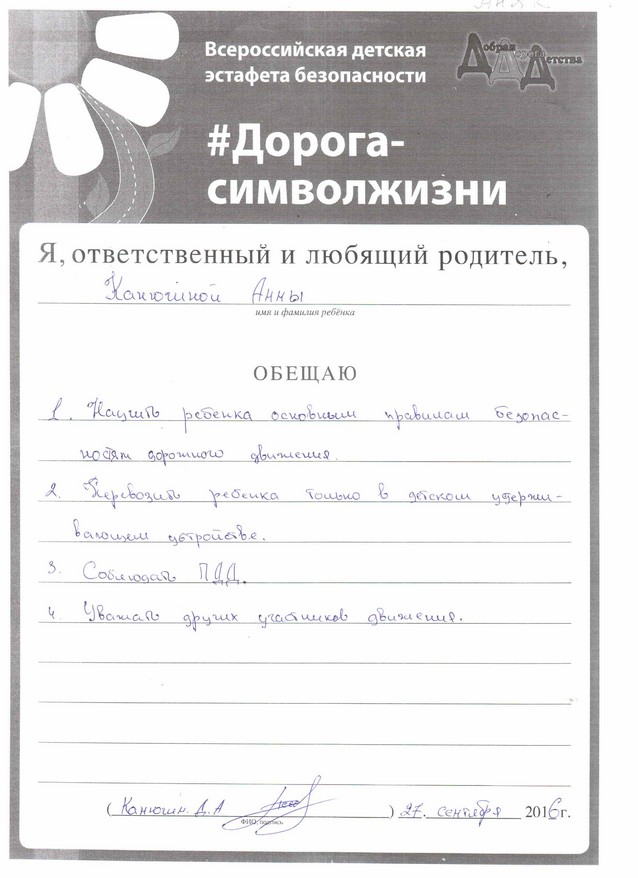 Всероссийская детская
эстафета безопасности
Добрая Дорога Детства
#Дорога-
символжизни
Я, ответственный и любящий родитель,
Канюгиной Анны
имя и фамилия ребёнка
ОБЕЩАЮ
1. Научить ребенка основным правилам безопас-
ностям дорожного движения.
2. Перевозить ребенка только в детском удержи-
вающем устройстве.
3. Соблюдать ПДД.
4. Уважать других участников движения.
(Канюгин. Д.А ) 27. сентября 2016г.
ФИО, подпись